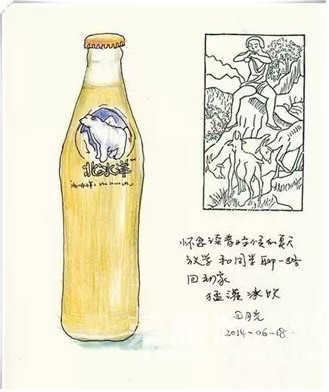 北冰洋
怀念读书时候和夏天
放学 和同学聊一路
回到家
猛灌冰饮
2014-06-18.